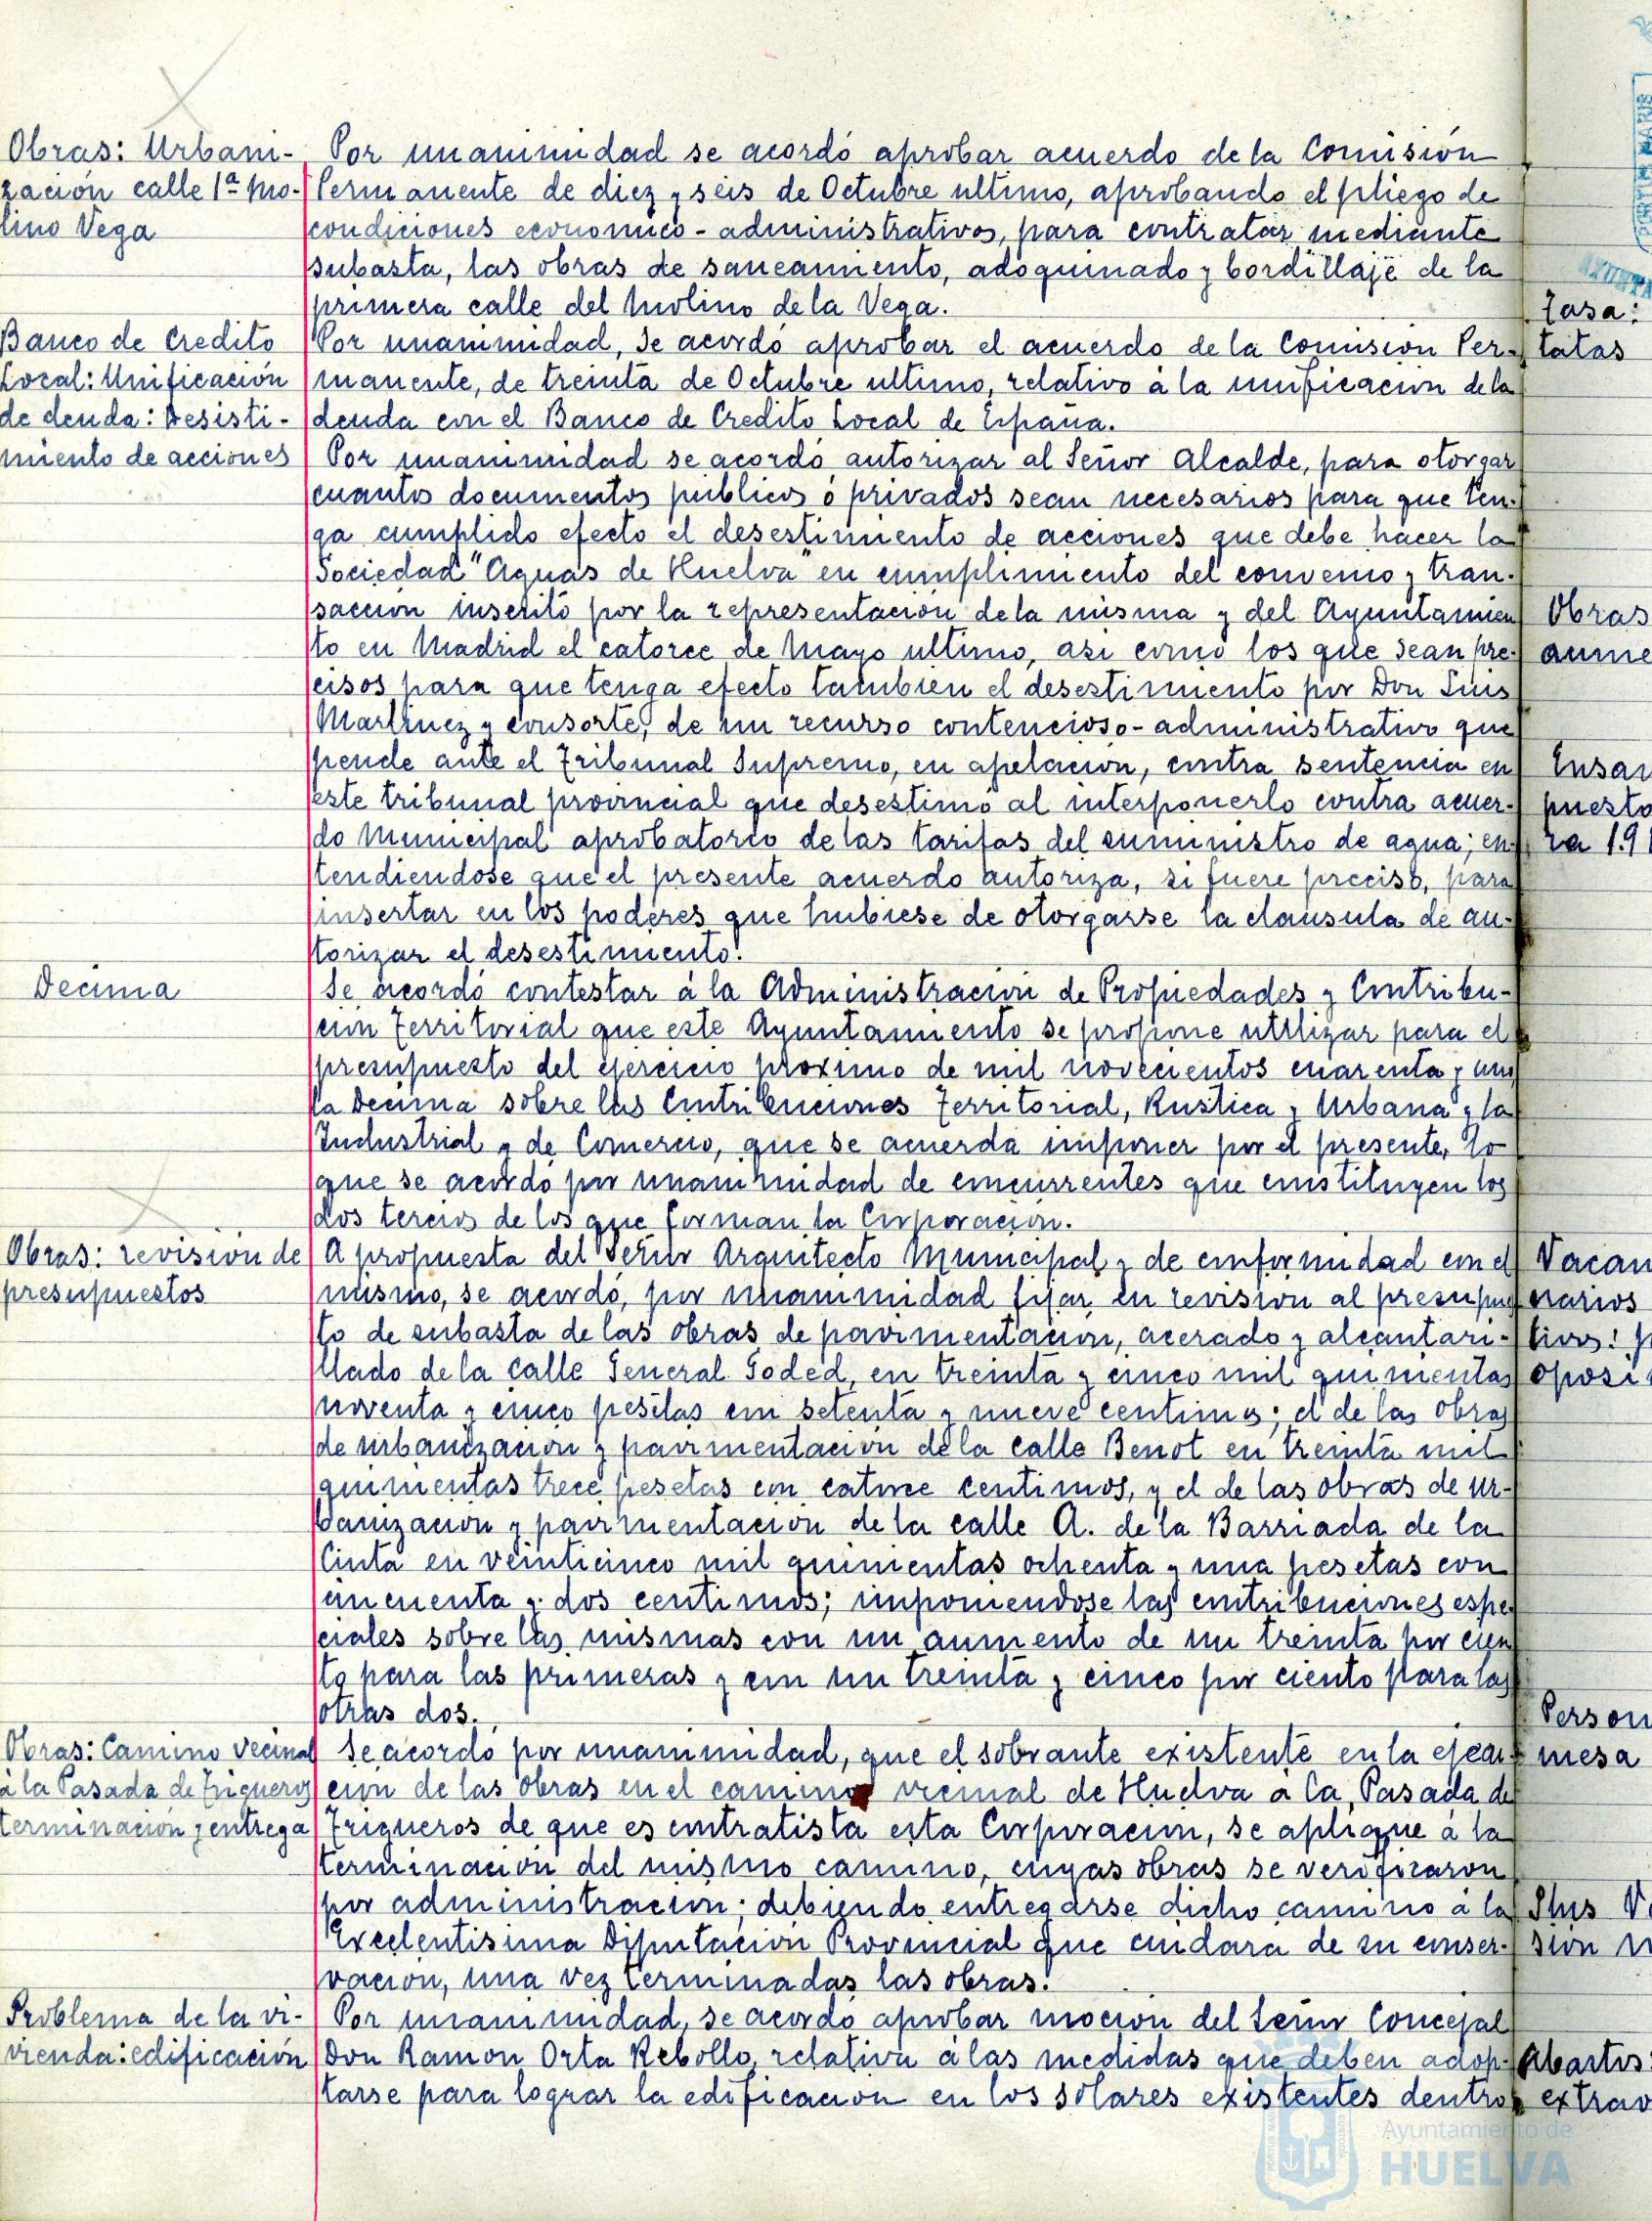 Obras: Urbani-
zación calle 1ª Mo-
lino Vega
Por unanimidad se acordó aprobar acuerdo de la Comisión
Permanente de diez y seis de Octubre ultimo, aprobando el pliego de
condiciones economico-administrativas, para contratar mediante
subasta, las obras de saneamiento, adoquinado y bordillaje de la
primera calle del Molino de la Vega.
Banco de Credito
Local: Unificación
de deuda: Desisti-
miento de acciones
Por unanimidad, se acordó aprobar el acuerdo de la Comisión Per-
manente, de treinta de Octubre ultimo, relativo á la unificacion de la
deuda con el Banco de Credito Local de España.
Por unanimidad se acordó autorizar al Señor Alcalde, para otorgar
cuantos documentos publicos ó privados sean necesarios para que ten-
ga cumplido efecto el desestimiento de acciones que debe hacer la
Sociedad "Aguas de Huelva" en cumplimiento del convenio y tran-
sacción inscrito por la representación de la misma y del Ayuntamien
to en Madrid el catorce de Mayo ultimo, asi como los que sean pre-
cisos para que tenga efecto tambien el desestimiento por Don Luis
Martinez y consorte, de un recurso contencioso-administrativo que
pende ante el Tribunal Supremo, en apelación, contra sentencia en
este tribunal provincial que desestimó al interponerlo contra acuer-
do Municipal aprobatorio de las tarifas del suministro de agua; en-
tendiendose que el presente acuerdo autoriza, si fuere preciso, para
insertar en los poderes que hubiese de otorgarse la clausula de au-
torizar el desestimiento.
Decima
Se acordó contestar á la Administración de Propiedades y Contribu-
ción Territorial que este Ayuntamiento se propone utilizar para el
presupuesto del ejercicio proximo de mil novecientos cuarenta y uno
la Decima sobre las Contribuciones Territorial, Rustica y Urbana y la
Industrial y de Comercio, que se acuerda imponer por el presente, lo
que se acordó por unanimidad de concurrentes que constituyen los
dos tercios de los que forman la Corporación.
Obras: revisión de
presupuestos
A propuesta del Señor Arquitecto Municipal y de conformidad con el
mismo, se acordó, por unanimidad fijar en revisión al presupues
to de subasta de las obras de pavimentación, acerado y alcantari-
llado de la calle General Goded, en treinta y cinco mil quinientas
noventa y cinco pesetas con setenta y nueve centimos; el de las obras
de urbanización y pavimentación de la calle Benot en treinta mil
quinientas trece pesetas con catorce centimos, y el de las obras de ur-
banización y pavimentación de la calle A. de la Barriada de la
Cinta en veinticinco mil quinientas ochenta y una pesetas con
cincuenta y dos centimos; imponiendose las contribuciones espe-
ciales sobre las mismas con un aumento de un treinta por cien
to para las primeras y con un treinta y cinco por ciento para las
otras dos.
Obras: Camino vecinal
á la Pasada de Trigueros
terminación y entrega
Se acordó por unanimidad, que el sobrante existente en la ejecu-
cion de las obras en el camino vecinal de Huelva á la Pasada de
Trigueros de que es contratista esta Corporacion, se aplique á la
terminación del mismo camino, cuyas obras se verificaron
por administracion; debiendo entregarse dicho camino á la
Excelentisima Diputación Provincial que cuidara de su conser-
vación, una vez terminadas las obras.
Problema de la vi-
vienda: edificación
Por unanimidad, se acordó aprobar moción del Señor Concejal
Don Ramon Orta Rebollo, relativa á las medidas que deben adop-
tarse para lograr la edificacion en los solares existentes dentro
Tasa:
tatas
Obras
aume
Ensan
puesto
ra 191
Vacan
narios
tivos:
oposi
Person
mesa
Plus
sion
Abastos
extrao
Ayuntamiento de
HUELVA